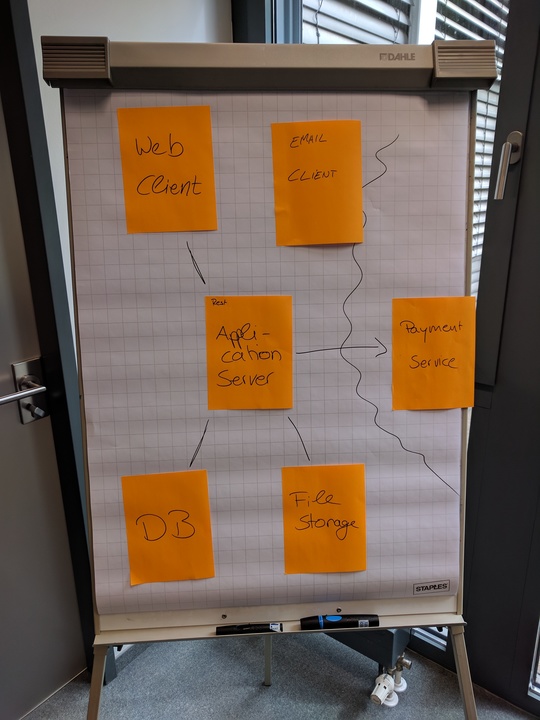 DAHLE
Web
Client
EMAIL
CLIENT
Rest
Appli-
cation
Server
Payment
Service
DB
File
Storage
STAPLES